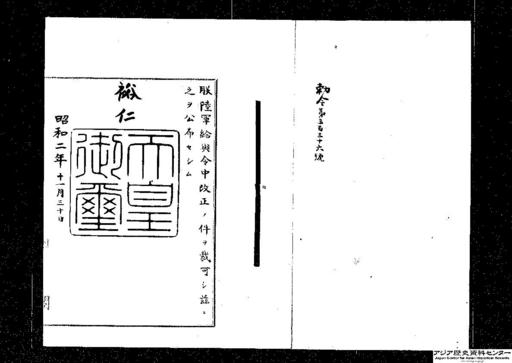 勅令第五百三十六號
朕陸軍給與令中改正ノ件ヲ裁可シ茲ニ
之ヲ公布セシム
裕仁
天皇
御璽
昭和二年十一月三十日
アジア歴史資料センター
Japan Center for Asian Historical Records